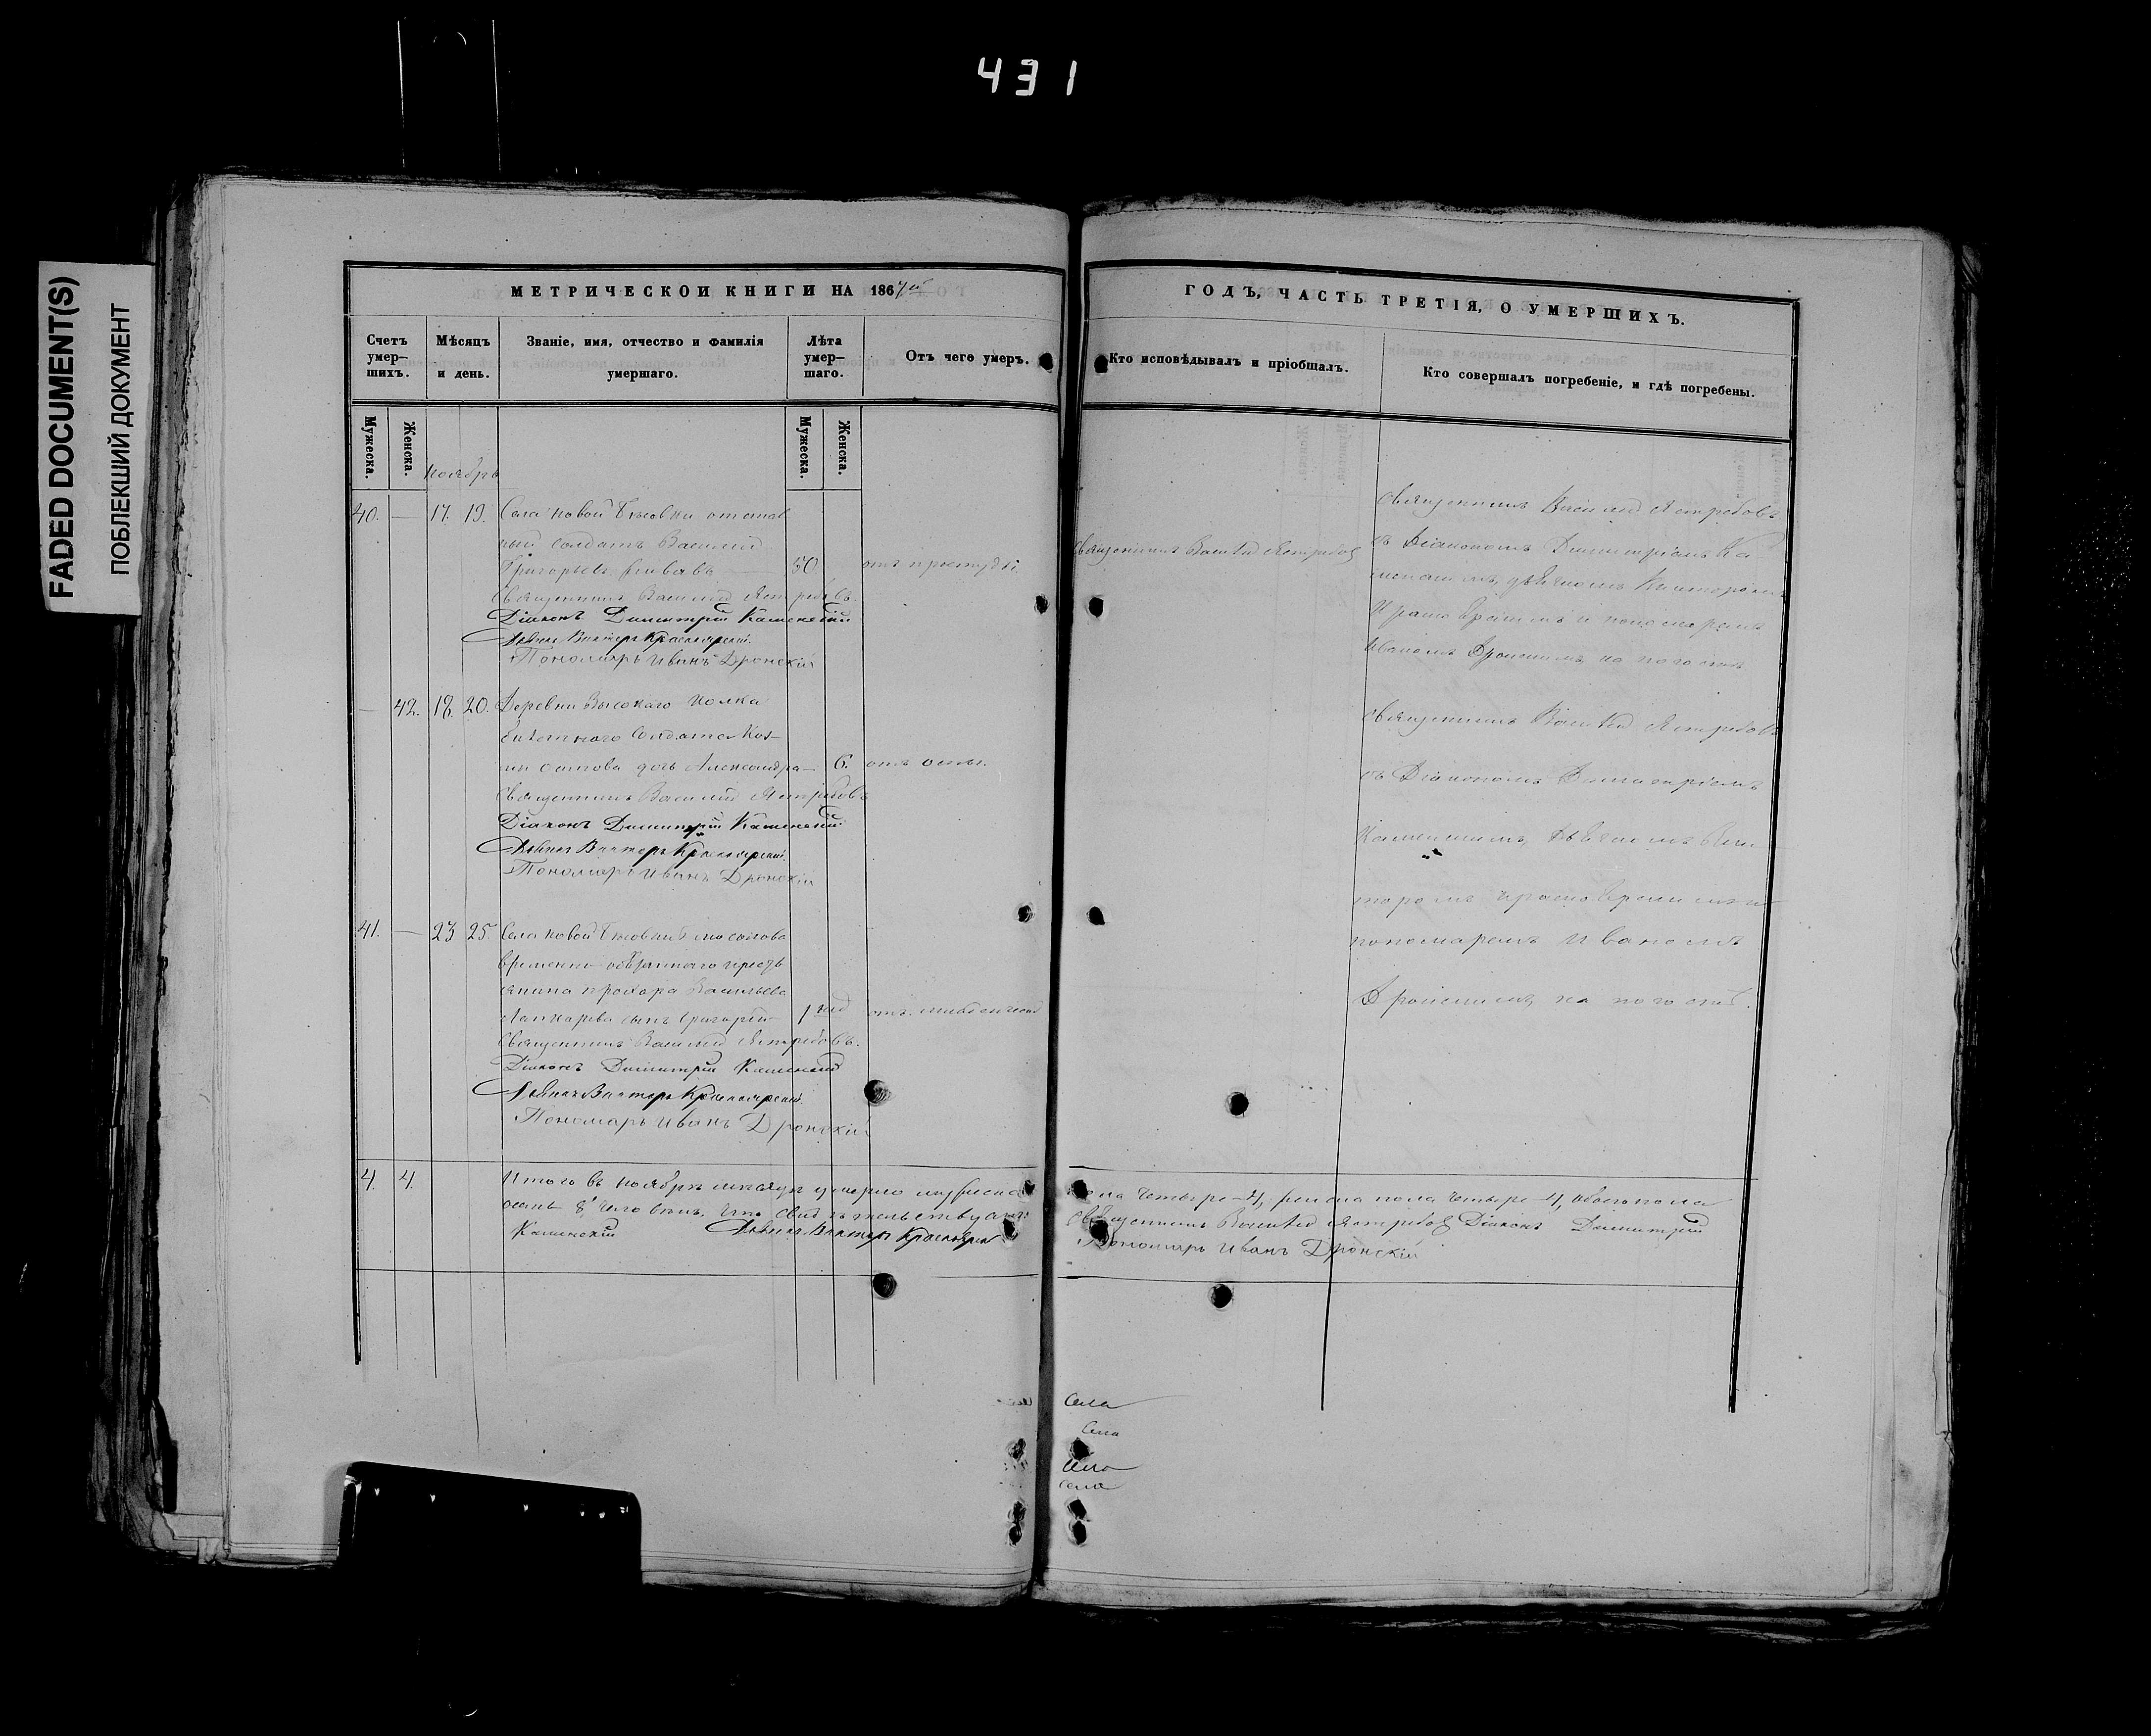 431
FADED DOCUMENT(S)
ПОБЛЕКШИЙ ДОКУМЕНТ
МЕТРИЧЕСКОЙ КНИГИ НА 1867й
Счетъ умер-шихъ.
Мѣсяцъ и день.
Званіе, имя, отчество и фамилія умершаго.
Лѣта умер-шаго.
Отъ чего умеръ.
Мужеска.
Женска.
Мужеска.
Женска.
Ноябрь
40. — 17. 19. Села Новой отстав
ной солдатъ Василій
Григорьевъ 50. отъ простуды.
Священникъ Василій Ястребовъ.
Діаконъ Димитрій Каменскій
Дьячекъ Викторъ Красноярскій.
Пономарь Иванъ Дронскій
— 42. 18. 20. Деревни Высокаго Полка
билетнаго солдата Коз-
мы дочь Александра — 6. отъ оспы.
Священникъ Василій Ястребовъ
Діаконъ Димитрій Каменскій
Дьячекъ Викторъ Красноярскій.
Пономарь Иванъ Дронскій
41. — 23 25. Села Новой
временно обязаннаго кресть
янина Прохора Васильева
сынъ Григорій — 1 нед отъ младенческой
Священникъ Василій Ястребовъ.
Діаконъ Димитрій Каменскій
Дьячекъ Викторъ Красноярскій.
Пономарь Иванъ Дронскій
4. 4. Итого въ ноябрѣ мѣсяцѣ умерло мужеска
осемь 8 человѣкъ, что свидѣтельствуютъ
Каменскій Дьячекъ Викторъ Красноярскій
ГОДЪ, ЧАСТЬ ТРЕТІЯ, О УМЕРШИХЪ.
Кто исповѣдывалъ и пріобщалъ.
Кто совершалъ погребеніе, и гдѣ погребены.
Священникъ Василій Ястребовъ
Священникъ Василій Ястребовъ
съ Діакономъ Димитріемъ Ка
менскимъ, дьячкомъ Викторомъ
и пономаремъ
Иваномъ Дронскимъ на погостѣ
Священникъ Василій Ястребовъ
съ Діакономъ Димитріемъ
Каменскимъ, дьячкомъ Вик
торомъ и
пономаремъ Иваномъ
Дронскимъ, на погостѣ.
пола четыре - 4, женска пола четыре - 4, обоего пола
Священникъ Василій Ястребовъ Діаконъ Димитрій
Пономарь Иванъ Дронскій
Села
Села
Села
Села